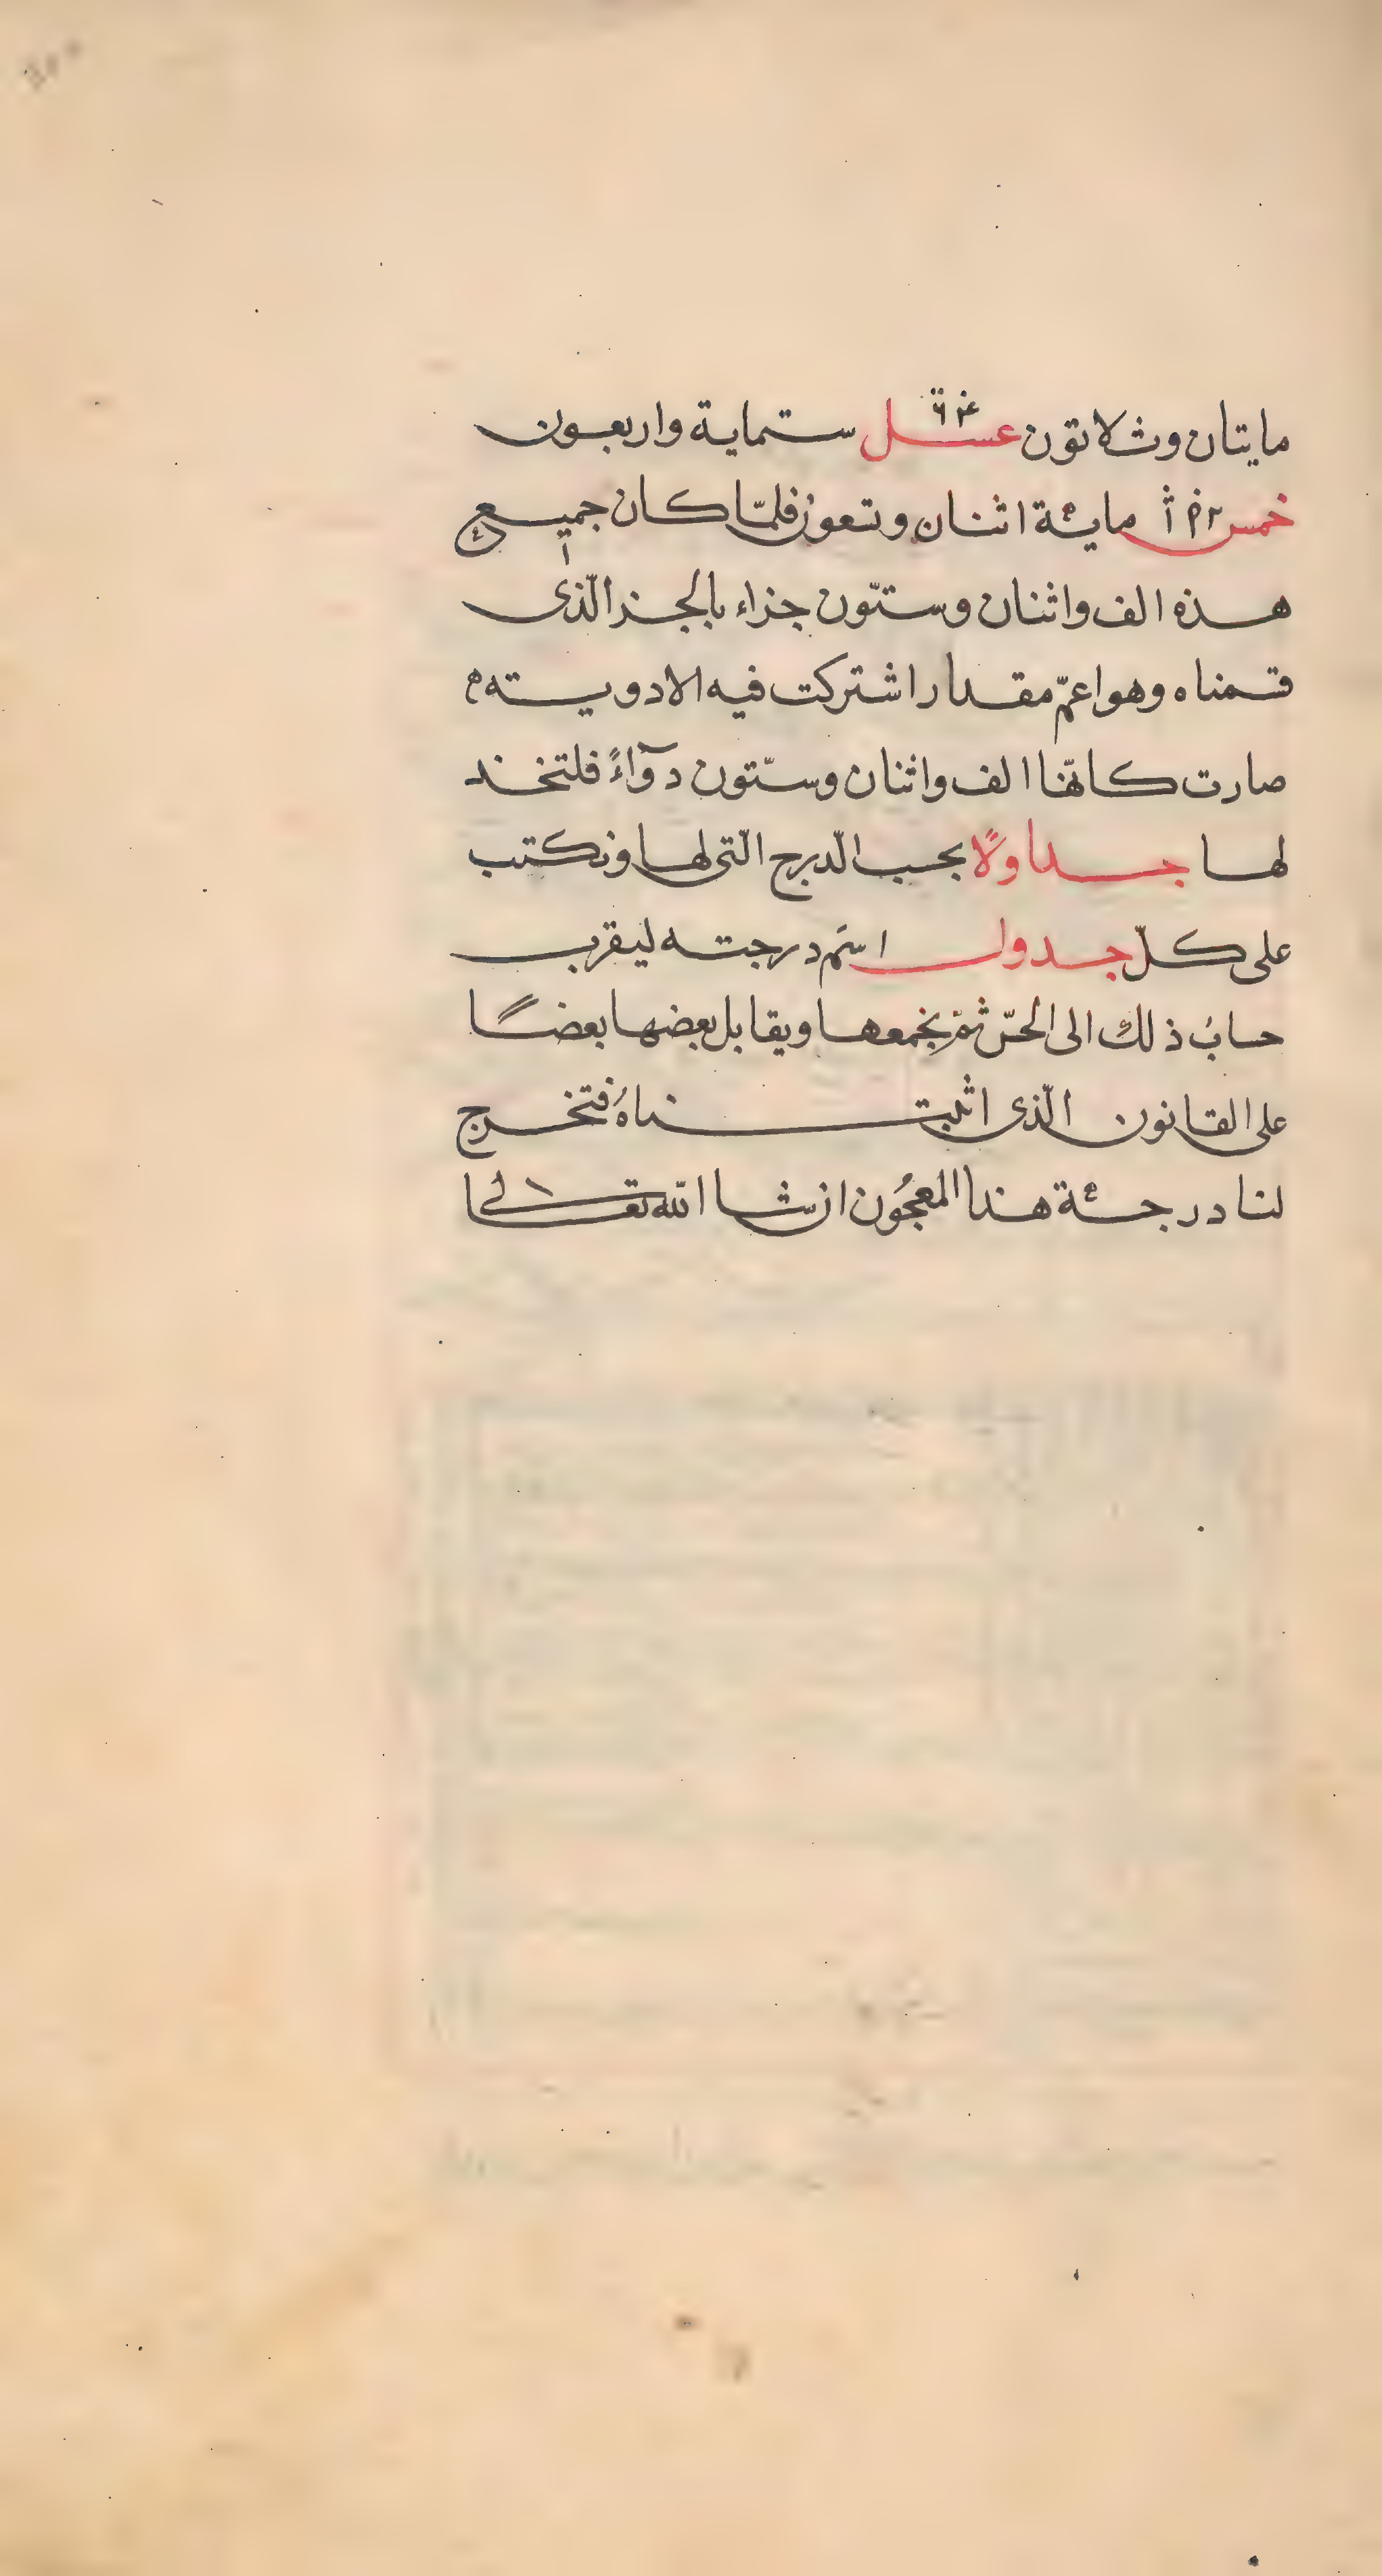 مايتان وثلاثون عسل ستماية واربعون
خمس مايئة اثنان وتسعون فلمّا كان جميع
هذه الف واثنان وستّون جزاء بالجز الّذى
قسمناه وهو اعمّ مقدار اشتركت فيه الادويته
صارت كانّها الف واثنان وستّون دوآءً فلتخذ
لها جداولًا بحسب الدّرج الّتى لها ونكتب
على كلّ جدول اسم درجته ليقرب
حسابُ ذلك الى الحسّ ثمّ نجمعها ويقابل بعضها بعضًا
على القانون الّذى اثبتناهُ فتخرج
لنا درجئة هذا المعجُون ان شا الله تعالى